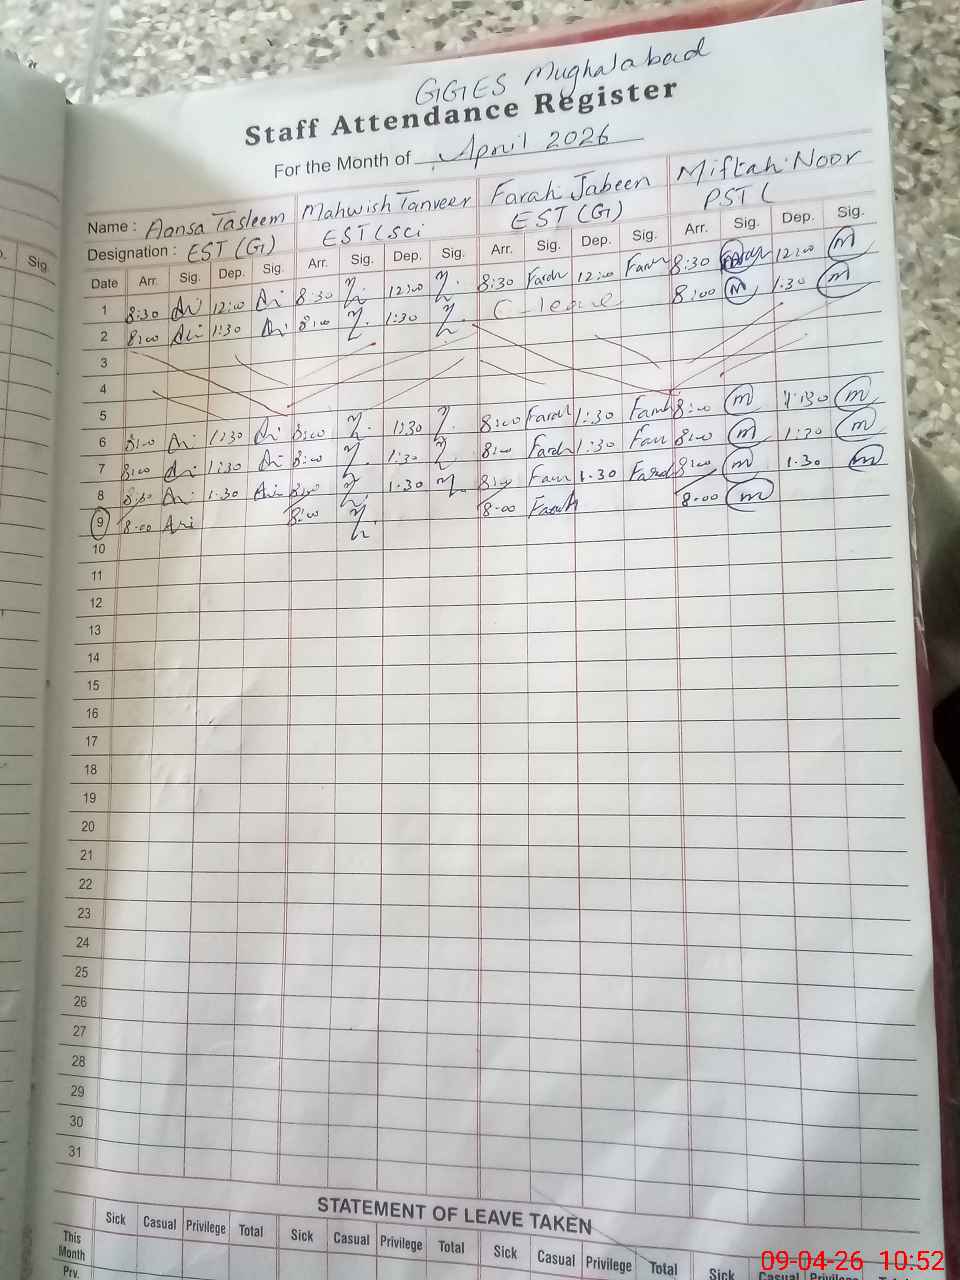 GGES Mughalabad
Staff Attendance Register
For the Month of April 2026
Name : Aansa Tasleem Mahwish Tanveer Farah Jabeen Miftah Noor
Designation : EST (G) EST (Sci EST (G) PST (
Date Arr. Sig. Dep. Sig. Arr. Sig. Dep. Sig. Arr. Sig. Dep. Sig. Arr. Sig. Dep. Sig.
1 8:30 12:00 8:30 12:00 8:30 Farah 12:00 Farah 8:30 12:00 m
2 8:00 1:30 8:00 1:30 C-leave 8:00 m 1:30 m
3
4
5
6 8:00 1:30 8:00 1:30 8:00 Farah 1:30 Farah 8:00 m 1:30 m
7 8:00 1:30 8:00 1:30 8:00 Farah 1:30 Farah 8:00 m 1:30 m
8 1.30 1.30 1.30 Farah 8:00 m 1.30 m
9 8:00 8:00 8-00 Farah 8-00 m
10
11
12
13
14
15
16
17
18
19
20
21
22
23
24
25
26
27
28
29
30
31
STATEMENT OF LEAVE TAKEN
Sick Casual Privilege Total Sick Casual Privilege Total Sick Casual Privilege Total Sick Casual Privilege Total
This Month
Prv.
Sig.
09-04-26 10:52